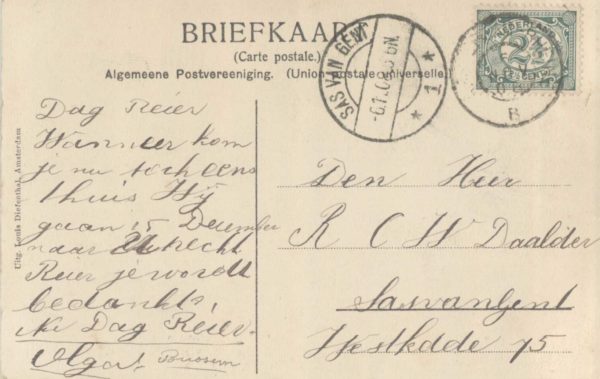 BRIEFKAART
(Carte postale.)
Algemeene Postvereeniging. (Union postale universelle.)
SAS VAN GENT
1
NEDERLAND
2½
CENT
B
Uitg. Louis Diefenthal, Amsterdam
Dag Reier
Wanneer kom
je nu toch eens
thuis Wij
gaan 15 December
naar Utrecht
Reier je wordt
bedankt,
Nu Dag Reier.
Olga
Den Heer
R C W Daalder
Sasvangent
Westkade 75